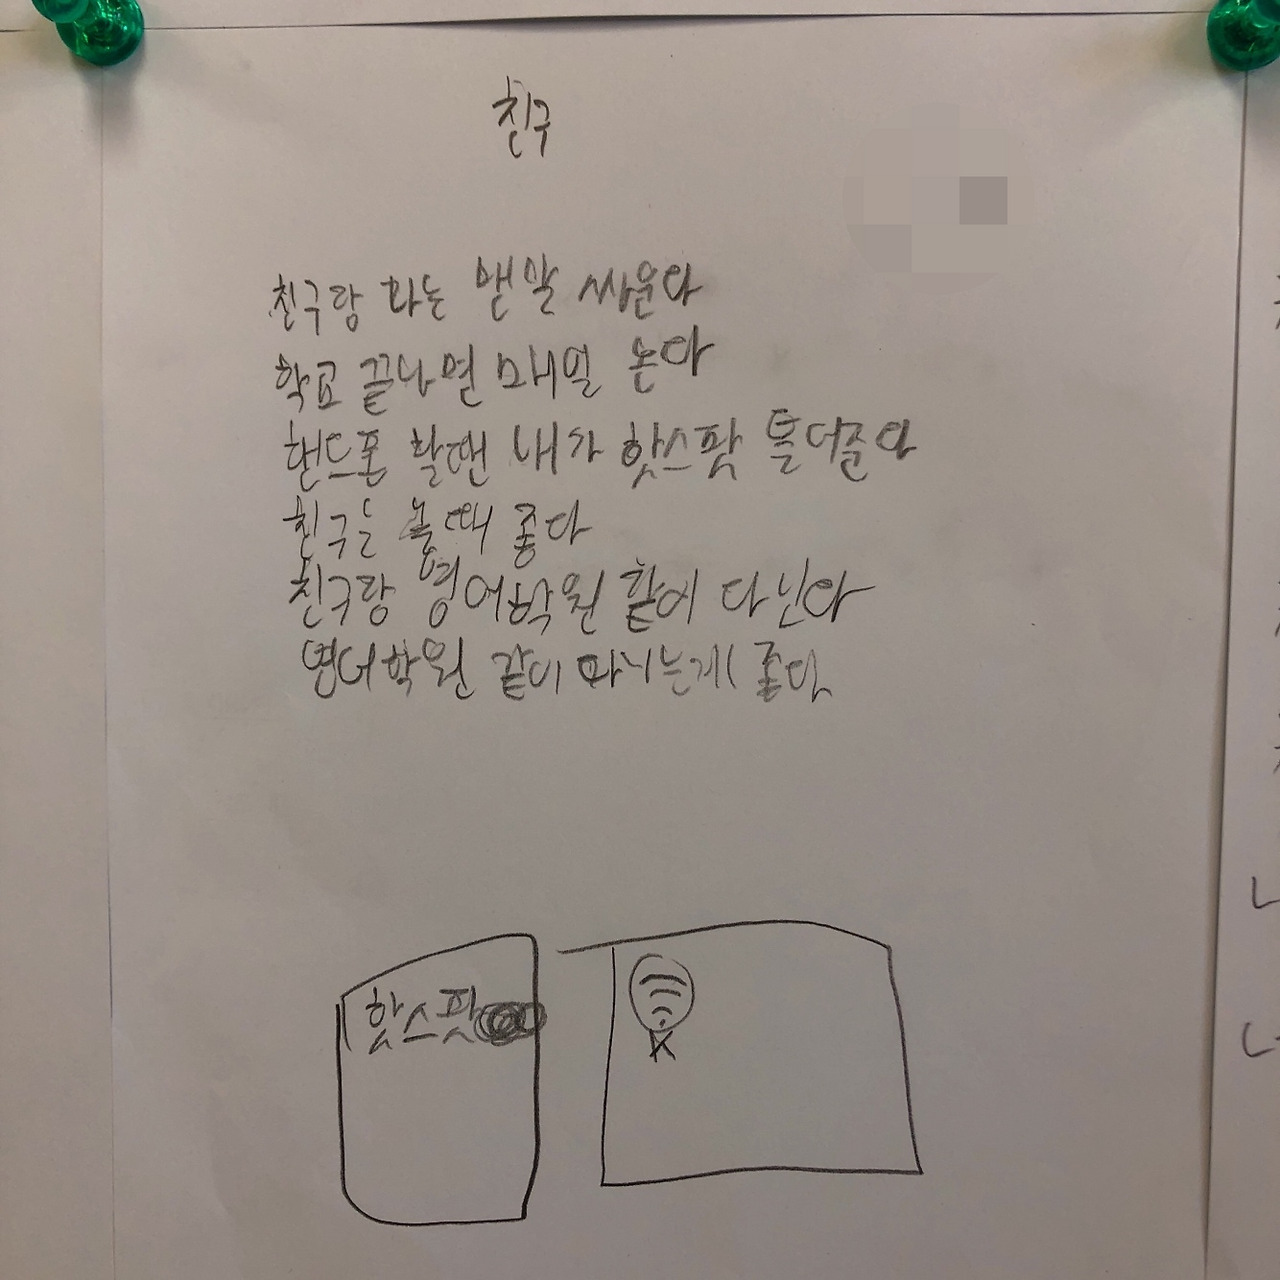 친구
친구랑 화는 맫말 싸운다
학교 끝나면 매일 논다
핸드폰 할땐 내가 핫스팟 틀어준다
친구는 놀때 좋다
친구랑 영어학원 핱에 다닌다
영어학원 같이 다니는게 좋다
핫스팟